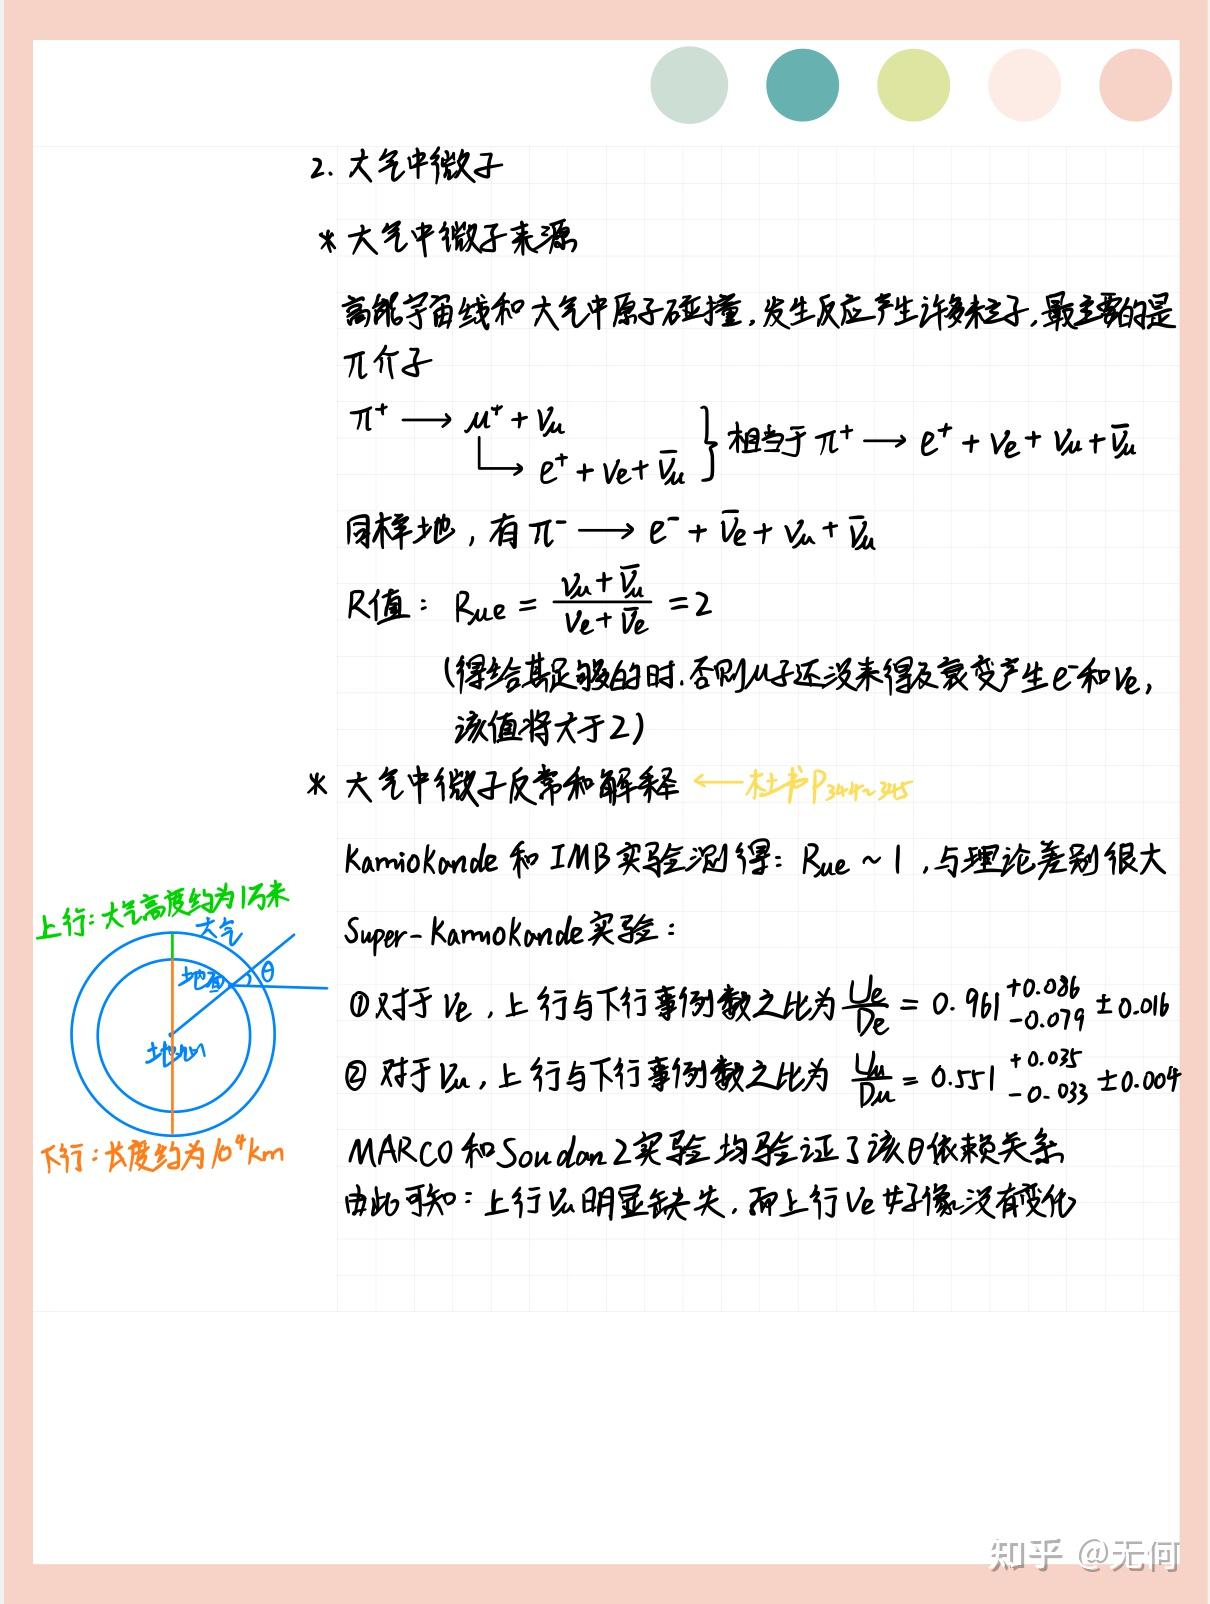 2. 大气中微子
* 大气中微子来源
高能宇宙线和大气中原子碰撞,发生反应产生许多粒子,最主要的是
π介子
π⁺ ⟶ μ⁺ + νμ
e⁺ + νe + ν̄μ } 相当于 π⁺ ⟶ e⁺ + νe + νμ + ν̄μ
同样地,有 π⁻ ⟶ e⁻ + ν̄e + νμ + ν̄μ
R值: Rμe = (νμ + ν̄μ)/(νe + ν̄e) = 2
(得给其足够的时.否则μ子还没来得及衰变产生e⁻和νe,
该值将大于2)
* 大气中微子反常和解释 ⟵杜书P344~345
Kamiokande 和 IMB实验测得: Rμe ~ 1 ,与理论差别很大
上行:大气高度约为1万米
大气
Super-Kamiokande实验:
地面
θ
① 对于νe,上行与下行事例数之比为 Ue/De = 0.961 +0.086 -0.079 ±0.016
地心
② 对于νμ,上行与下行事例数之比为 Uμ/Dμ = 0.551 +0.035 -0.033 ±0.004
下行:长度约为10⁴km
MARCO和Soudan2实验均验证了该θ依赖关系
由此可知:上行νμ明显缺失,而上行νe好像没有变化
知乎 @无何